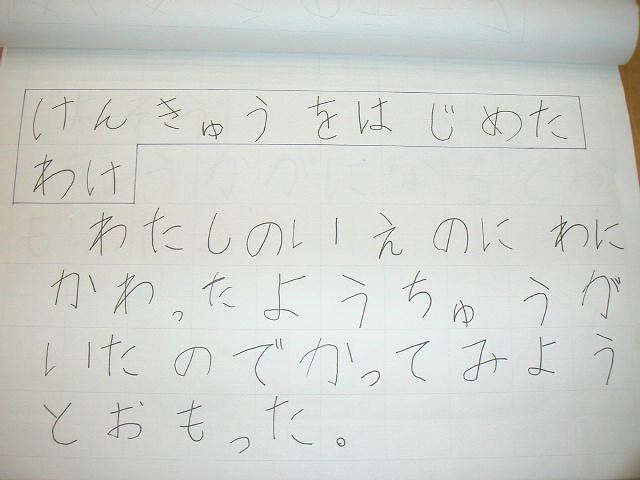 けんきゅうをはじめた
わけ
わたしのいえのにわに
かわったようちゅうが
いたのでかってみよう
とおもった。